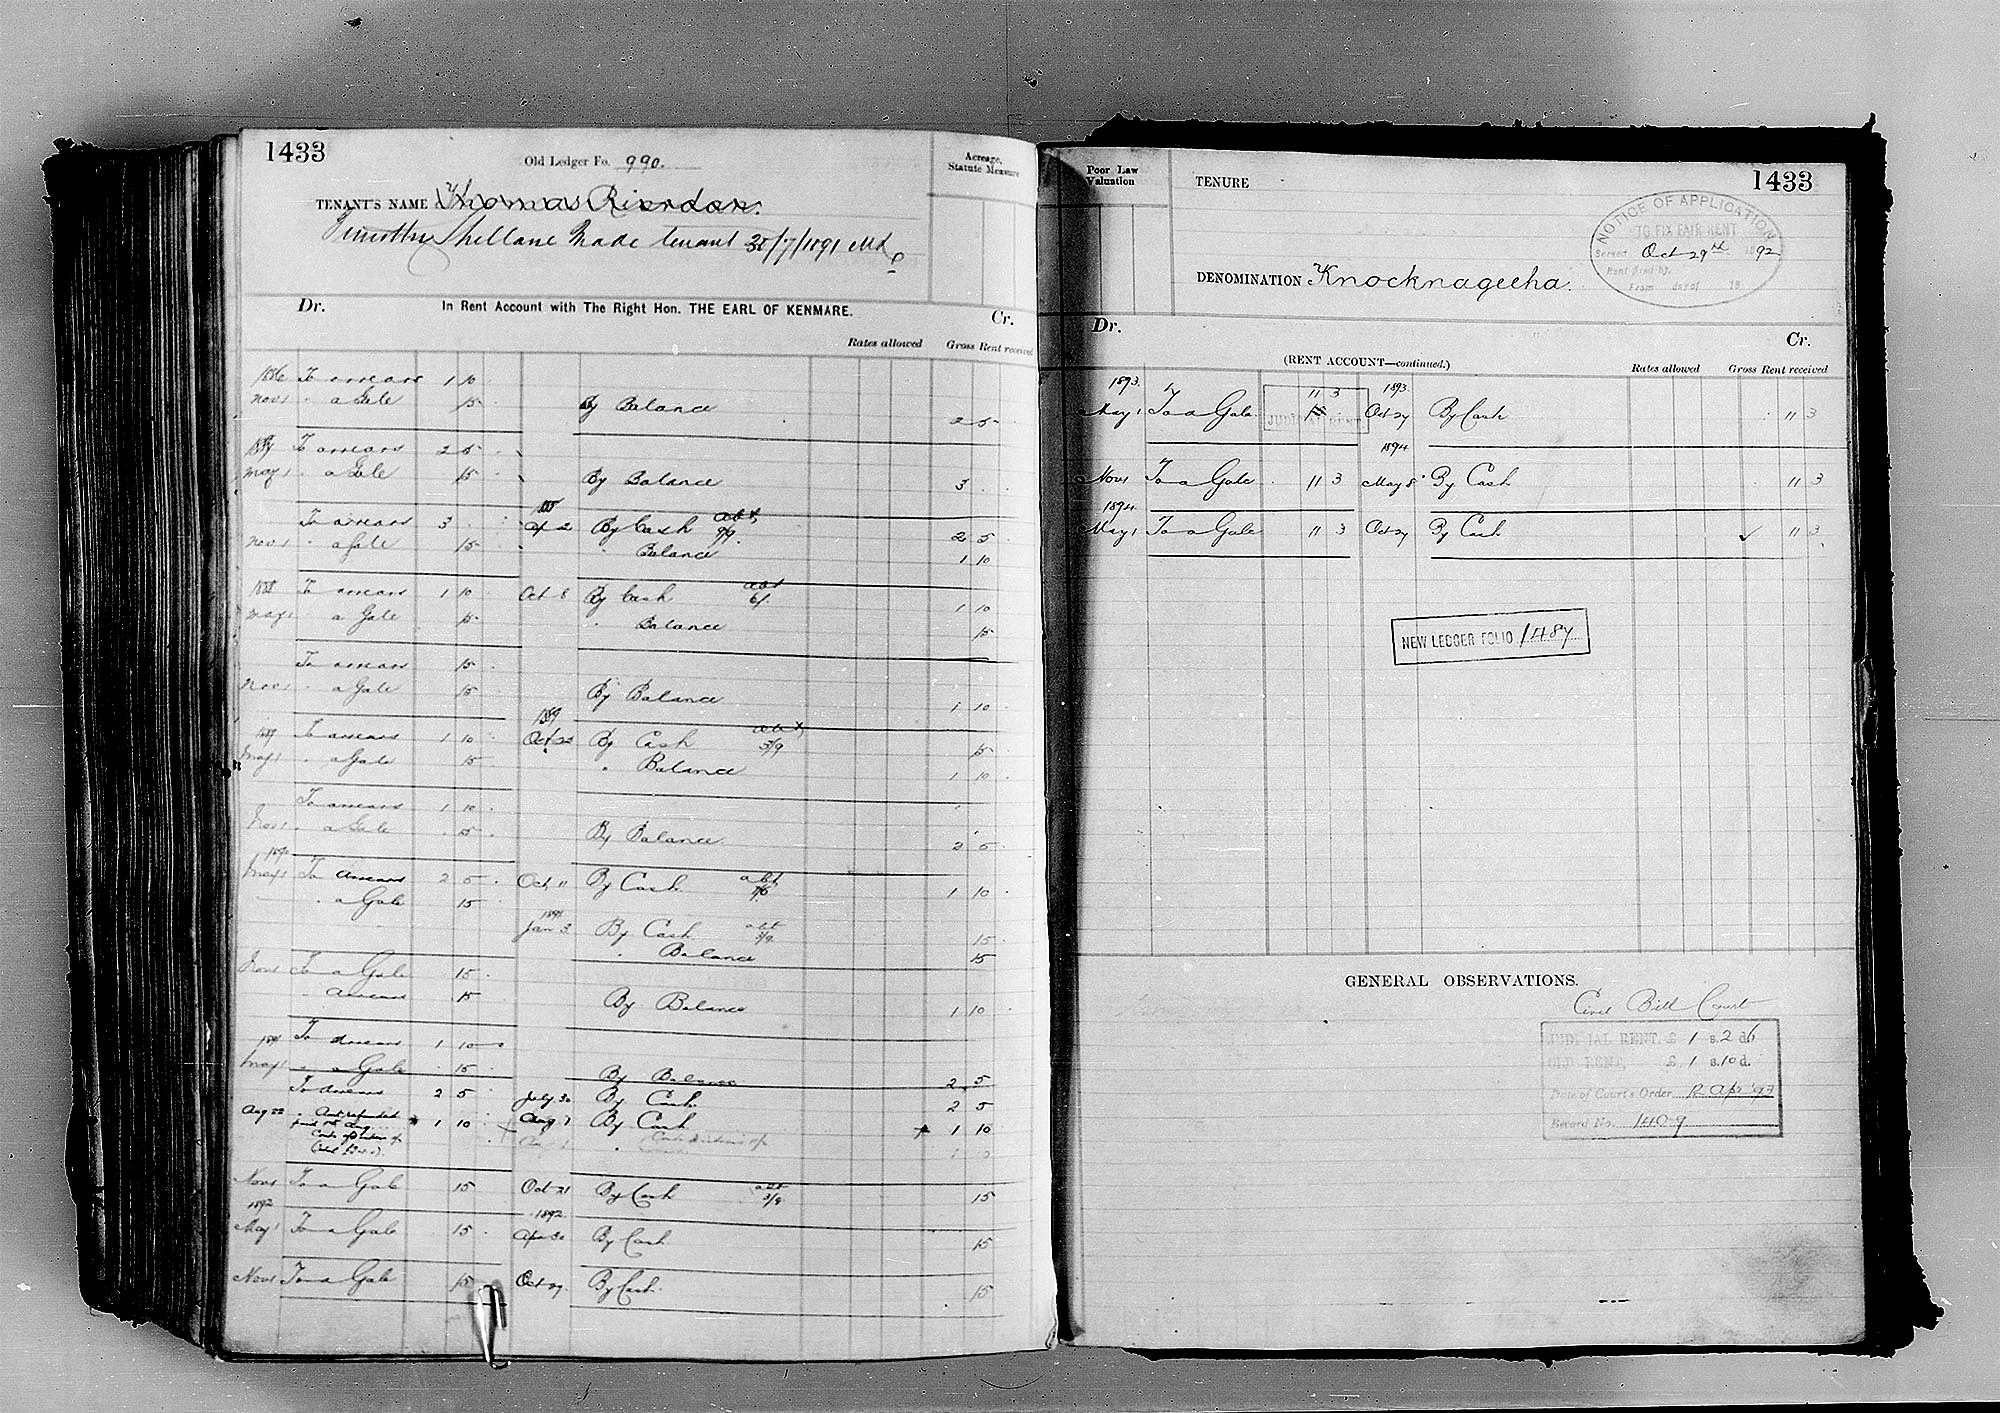 1433
Old Ledger Fo. 990.
Acreage, Statute Measure
TENANT'S NAME Thomas Riordan.
Timothy Shellane Made tenant 30/7/1891
Dr. In Rent Account with The Right Hon. THE EARL OF KENMARE. Cr.
Rates allowed Gross Rent received
1886 To arrears 1 10
Nov 1 " a Gale 15 By Balance 2 5
1887 To arrears 2 5
May 1 a Gale 15 By Balance 3
To arrears 3 Ap 2 By Cash abt 9/9. 2 5
Nov 1 " a Gale 15 " Balance 1 10
1888 To arrears 1 10 Oct 8 By Cash abt 6/. 1 10
May 1 " a Gale 15 " Balance 15
To arrears 15
Nov 1 " a Gale 15 By Balance 1 10
1889
1889 To arrears 1 10 Oct 22 By Cash abt 3/9 15
May 1 " a Gale 15 " Balance 1 10
To arrears 1 10
Nov 1 " a Gale 15 By Balance 2 5
1890
May 1 To arrears 2 5 Oct 11 By Cash abt 7/6 1 10
" a Gale 15
1891
Jan 3 By Cash abt 3/9 15
" Balance 15
Nov 1 To a Gale 15
arrears 15 By Balance 1 10
1891 To arrears 1 10
May 1 " a Gale 15 By Balance 2 5
To arrears 2 5 July 30 By Cash 2 5
Aug 22 " Amt refunded 1 10 Aug 7 By Cash 1 10
paid 7th Aug
Nov 1 To a Gale 15 Oct 21 By Cash abt 3/9 15
1892 1892
May 1 To a Gale 15 Apr 30 By Cash 15
Nov 1 To a Gale 15 Oct 29 By Cash 15
Poor Law Valuation
TENURE
1433
NOTICE OF APPLICATION
TO FIX FAIR RENT
Served Oct 29th 1892
Rent fixed by
From day of 18
DENOMINATION Knocknageeha.
Dr. Cr.
(RENT ACCOUNT—continued.)
Rates allowed Gross Rent received
1893. 11 3 1893.
May 1 To a Gale 15 Oct 27 By Cash 11 3
JUDICIAL RENT
1894
Nov 1 To a Gale 11 3 May 8 By Cash 11 3
1894
May 1 To a Gale 11 3 Oct 27 By Cash 11 3
NEW LEDGER FOLIO 1487
GENERAL OBSERVATIONS.
Civil Bill Court
JUDICIAL RENT, £ 1 s. 2 d 6
OLD RENT, £ 1 s. 10 d.
Date of Court's Order Apr '93
Record No. 1409